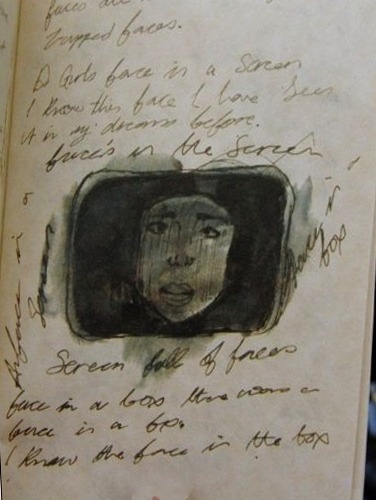 faces are
trapped faces.
A Girls face in a Screen
I Know this face I have seen
it in my dreams before.
faces in the Screen
A face in a
Screen
in a
box
Screen full of faces
face in a box there was a
face in a box
I Know the face in the box